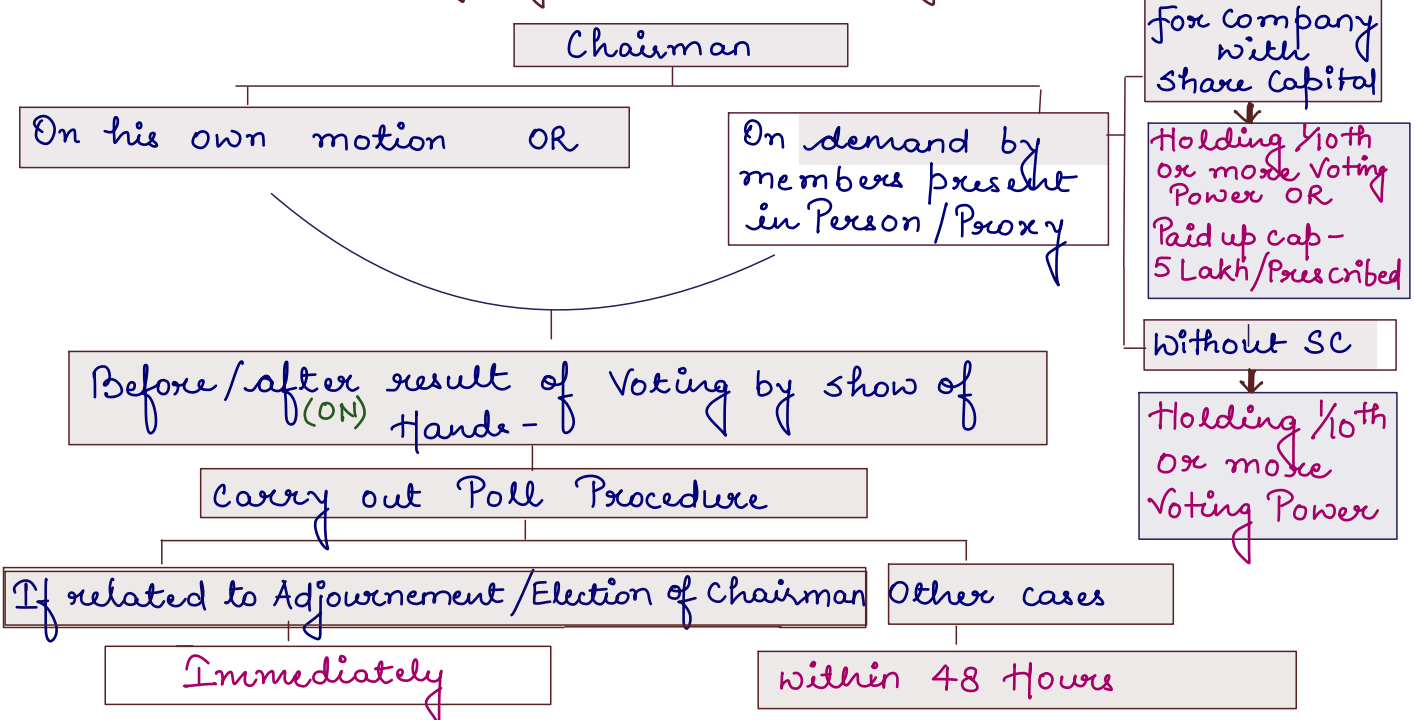 Chairman
On his own motion OR
On demand by
members present
in Person/Proxy
for company
with
share capital
Holding 1/10th
or more Voting
Power OR
Paid up cap-
5 Lakh/Prescribed
Without SC
Holding 1/10th
or more
Voting Power
Before/after result of Voting by show of
(ON)
Hands-
Carry out Poll Procedure
If related to Adjournement/Election of Chairman
Other cases
Immediately
within 48 Hours